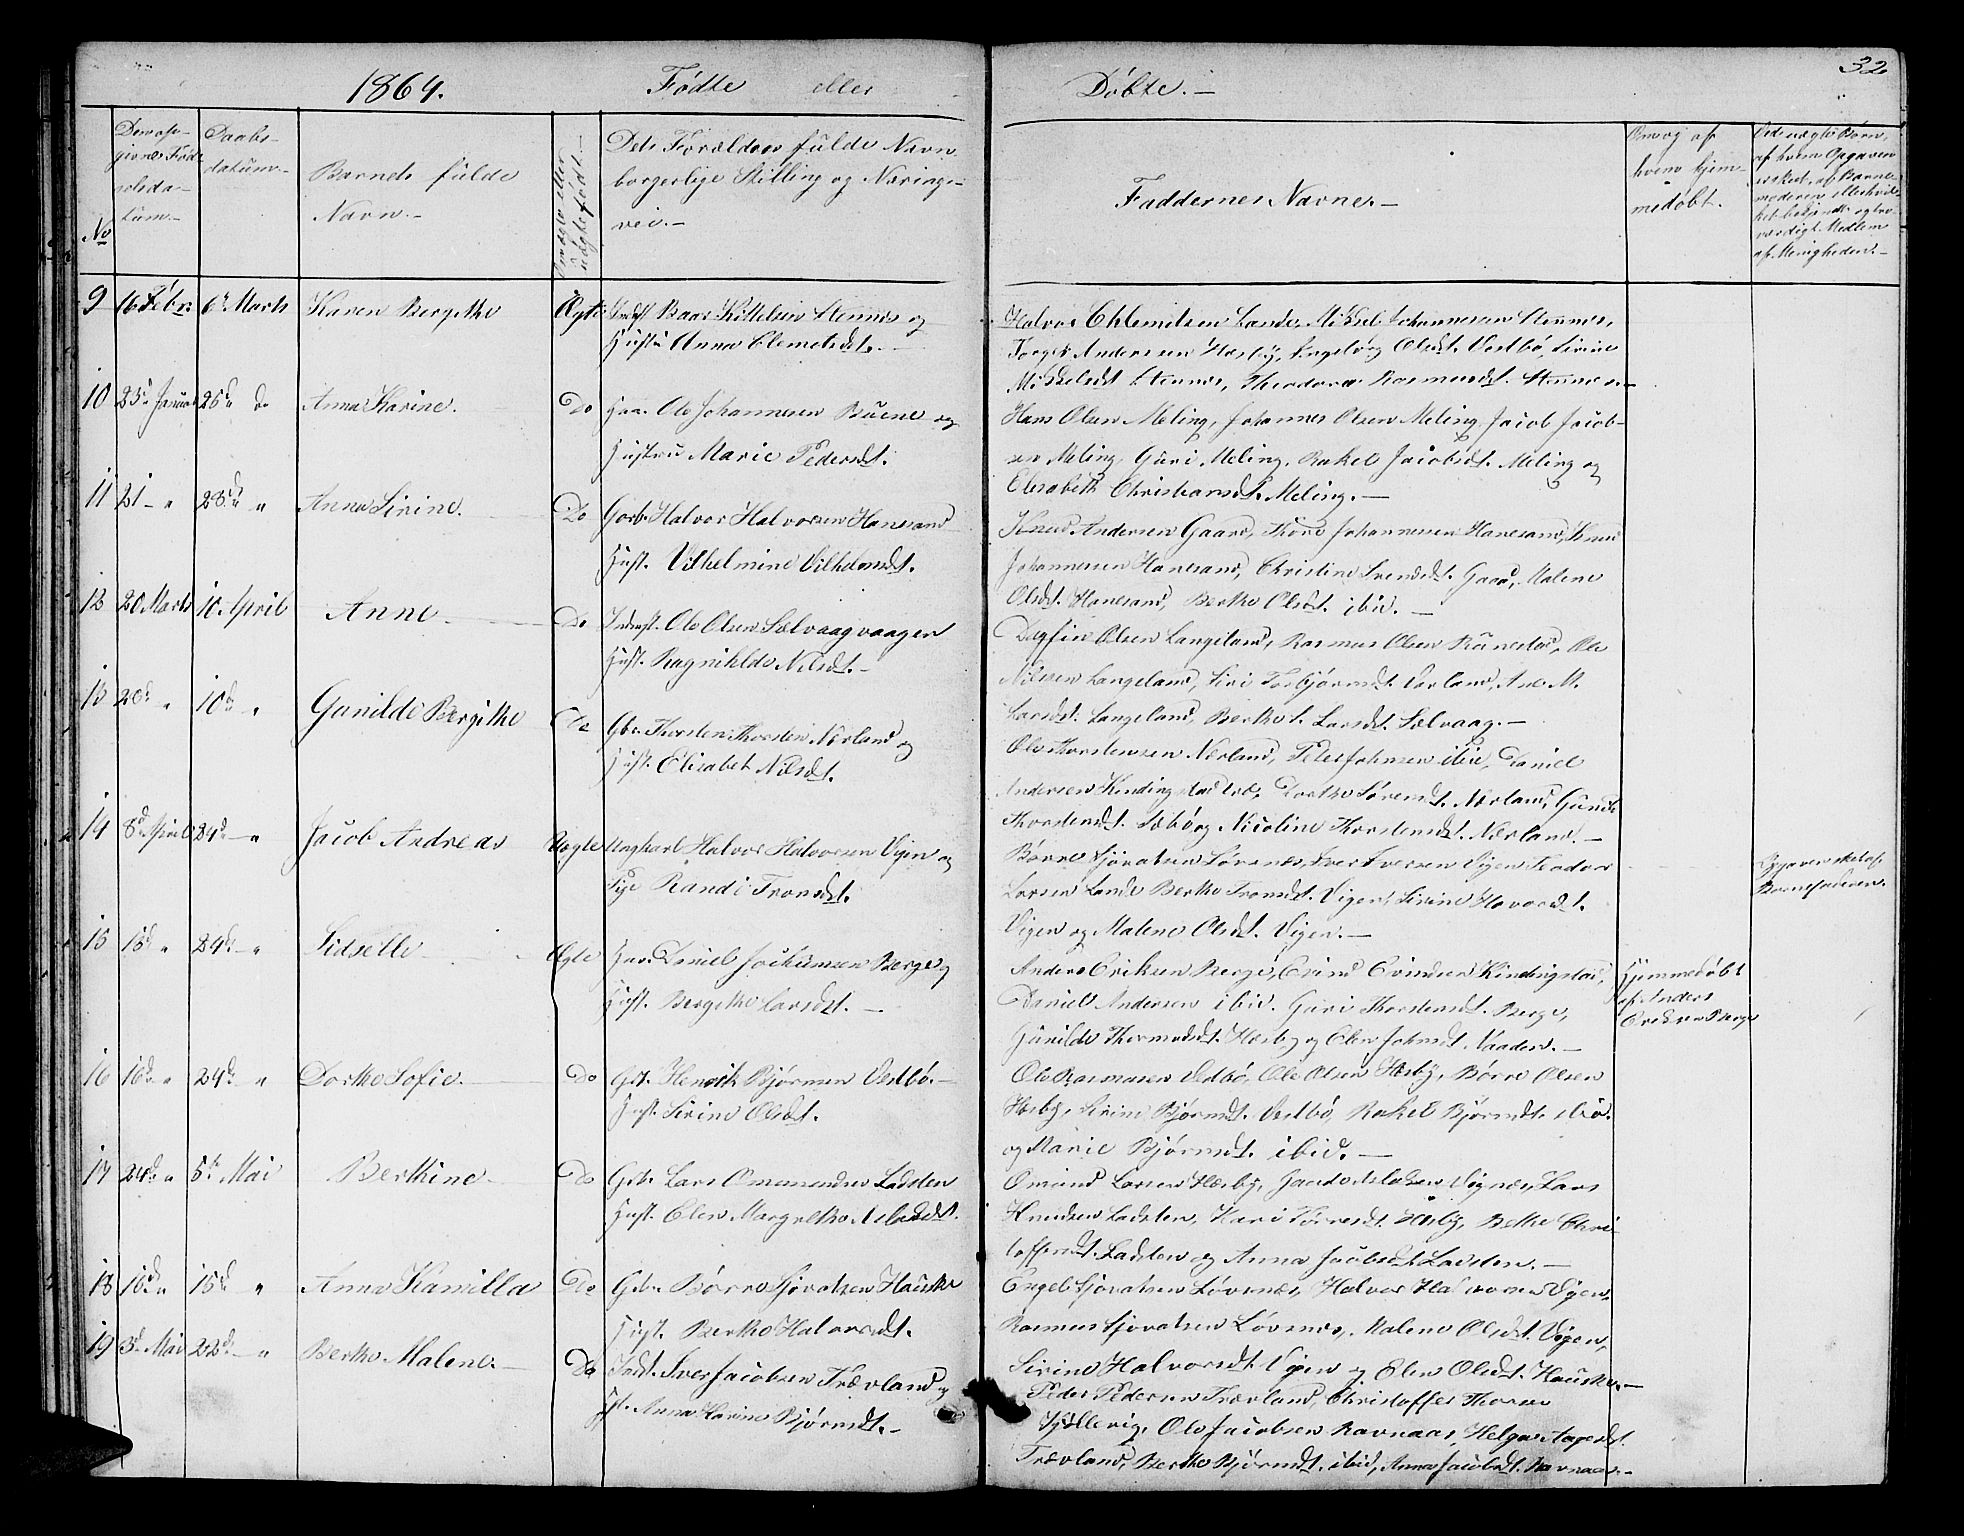 32
1864. Fødte eller Døbte.—
No
Den opgivne Fødselsdatum.—
Daabsdatum.—
Barnets fulde Navn.—
uægte eller ægtefødt.—
Dets Forældres fulde Navn borgerlige Stilling og Næringsvei.—
Faddernes Navne.—
Om og af hvem hjemmedøbt.
9 16 Febr. 6t Marts Karen Bergithe Ægte Baar Kittelsen Stennes og
Hustru Anna Clemetsdt.
Halvor Clemitsen Lande, Mikkel Johannesen Stennes,
Torger Andersen Hæsby, Engeborg Olsdt. Vestbø, Sirine
Mikkelsdt Stennes, Theodora Rasmusdt. Stennes.—
10 25d Januar 25d do Anna Karine. Do Ole Johannesen Buene og
Hustru Marie Pedersdt.
Hans Olsen Meling, Johannes Olsen Meling, Jacob Jacob-
sen Meling, Guri Meling, Rakel Jacobsdt. Meling og
Elisabeth Christiansdt. Meling.—
11 21 — " 28d " Anna Sirine. Do Halvor Halvorsen Hanesand
Hust. Vilhelmine Vilhelmsdt.
Knud Andersen Gaard, Thore Johannesen Hanesand, Knud
Johannesen Hanesand, Christine Svendsdt. Gaard, Malene
Olsdt. Hanesand, Berthe Olsdt. ibid.—
12 20 Marts 10. April Anne Do Indst. Ole Olsen Sælvaagvaagen
Hust. Ragnihlde Nilsdt.—
Dagfin Olsen Langeland, Rasmus Olsen Rånestad, Ole
Nilsen Langeland, Siri Torbjørnsdt. Vorland, Ane M.
Larsdt. Langeland, Berthe L. Larsdt. Sælvaag.—
13 20d " 10d " Gunilde Bergithe Do Gbr. Thorsten Thorsten Nærland og
Hust. Elisabet Nilsdt.
Ole Thorstensen Nærland, Peter Johnsen ibid, Daniel
Andersen Kindingstad, Dorthe Sørensdt. Nærland, Gunilde
Thorstensdt. Sæbø og Nicoline Thorstensdt. Nærland.—
14 8d April 24d " Jacob Andreas Uægte Ungkarl Halvor Halvorsen Vigen og
Pige Randi Tronsdt.
Børre Sjovatsen Løvsnæs, Iver Iversen Vigen, Teodor
Larsen Lande, Berthe Tronsdt. Vigen, Sirine Havorsdt.
Vigen og Malene Olsdt. Vigen.—
Opgaven sket af
Barnefaderen.
15 15d " 24d — " Sidselle Ægte Daniel Jochumsen Berge og
Hust. Bergithe Larsdt.—
Anders Eriksen Berge, Erind Erindsen Kindingstad,
Daniel Andersen ibid. Guri Thorstensdt. Berge,
Gunilde Thormodsdt. Hæsby og Elen Johnsdt. Naaden.—
Hjemmedøbt
af Anders
Eriksen Berge
16 16d " 24d " Dorthe Sofie. Do Gst. Henrik Bjørnsen Vestbø.—
Hust. Sirine Olsdt.
Ole Rasmusen Vestbø, Ole Olsen Hæsby, Børre Olsen
Hæsby, Sirine Bjørnsdt. Vestbø, Rakel Bjørnsdt. ibid.
og Marie Bjørnsdt. ibid.—
17 24d " 5t Mai Berthine Do Gbr. Lars Omundsen Ladsten
Hust. Elen Margrethe Aslaksdt.
Omund Larsen Hæsby, Vignes, Lars
Knudsen Ladsten, Kari Torresdt. Hæsby, Bethe Chri-
toffersdt. Ladsten og Anna Jacobsdt. Ladsten.—
18 16d " 15d " Anna Kamilla Do Gbr. Børre Sjovatsen Hauske
Hust. Berthe Halvorsdt.
Engel Sjovatsen Løvsnæs, Halvor Halvorsen Vigen,
Rasmus Sjovatsen Løvsnæs, Malene Olsdt. Vigen,
Sirine Halvorsdt. Vigen og Elen Olsdt. Hauske.—
19 3d Mai 22d — " Berthe Malene.— Do Indst. Iver Jacobsen Trævland og
Anna Karine Bjørnsdt.—
Peder Pedersen Trævland, Christoffer Thorsen
Ole Jacobsen Ravnaas, Helga Aagesdt.
Trævland, Berthe Bjørnsdt. ibid, Anna Jacobsdt. Ravnaas.—